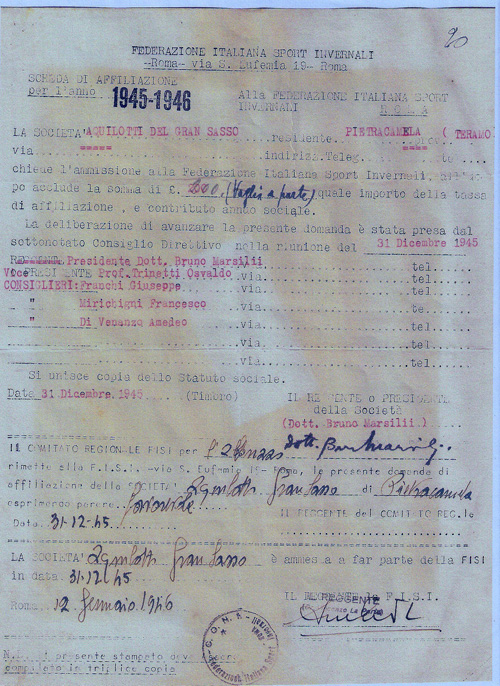 20
FEDERAZIONE ITALIANA SPORT INVERNALI
-Roma- via S. Eufemia 19- Roma
SCHEDA DI AFFILIAZIONE
per l'anno 1945-1946
Alla FEDERAZIONE ITALIANA SPORT
INVERNALI
LA SOCIETA' AQUILOTTI DEL GRAN SASSO residente PIETRACAMELA ( TERAMO
via indiriz. Teleg. te
chiede l'ammissione alla Federazione Italiana Sport Invernali, all'
po acclude la somma di £. 200. (Vaglia a parte) quale importo della tassa
di affiliazione , e contributo anno sociale.
La deliberazione di avanzare la presente domanda è stata presa dal
sottonotato Consiglio Direttivo nella riunione del 31 Dicembre 1945
Presidente Dott. Bruno Marsilii tel
Vice PRESIDENTE Prof. Trinetti Osvaldo via tel
CONSIGLIERI: Franchi Giuseppe via tel
" Mirichigni Francesco via tel
" Di Venanzo Amedeo via tel
via tel
via tel
Si unisce copia dello Statuto sociale.
Data 31 Dicembre, 1945 (Timbro)
IL REGENTE o PRESIDENTE
della Società
(Dott. Bruno Marsilii.)
IL COMITATO REGIONALE FISI per l'Abruzzo
rimette alla F.I.S.I. -via S. Eufemia 19- Roma, la presente domanda di
affiliazione della SOCIETA' Aquilotti Gran Sasso di Pietracamela
esprimendo parere favorevole
Data. 31-12-45
IL REGGENTE del COMITATO REG.le
LA SOCIETA' Aquilotti Gran Sasso è ammessa a far parte della FISI
in data 31.12.45
Roma, 12 Gennaio 1946
IL REGGENTE la F.I.S.I.
IL REGGENTE
C.O.N.I.
Federazione Italiana Sport
N.B. Il presente stampato deve esser
compilato in triplice copia